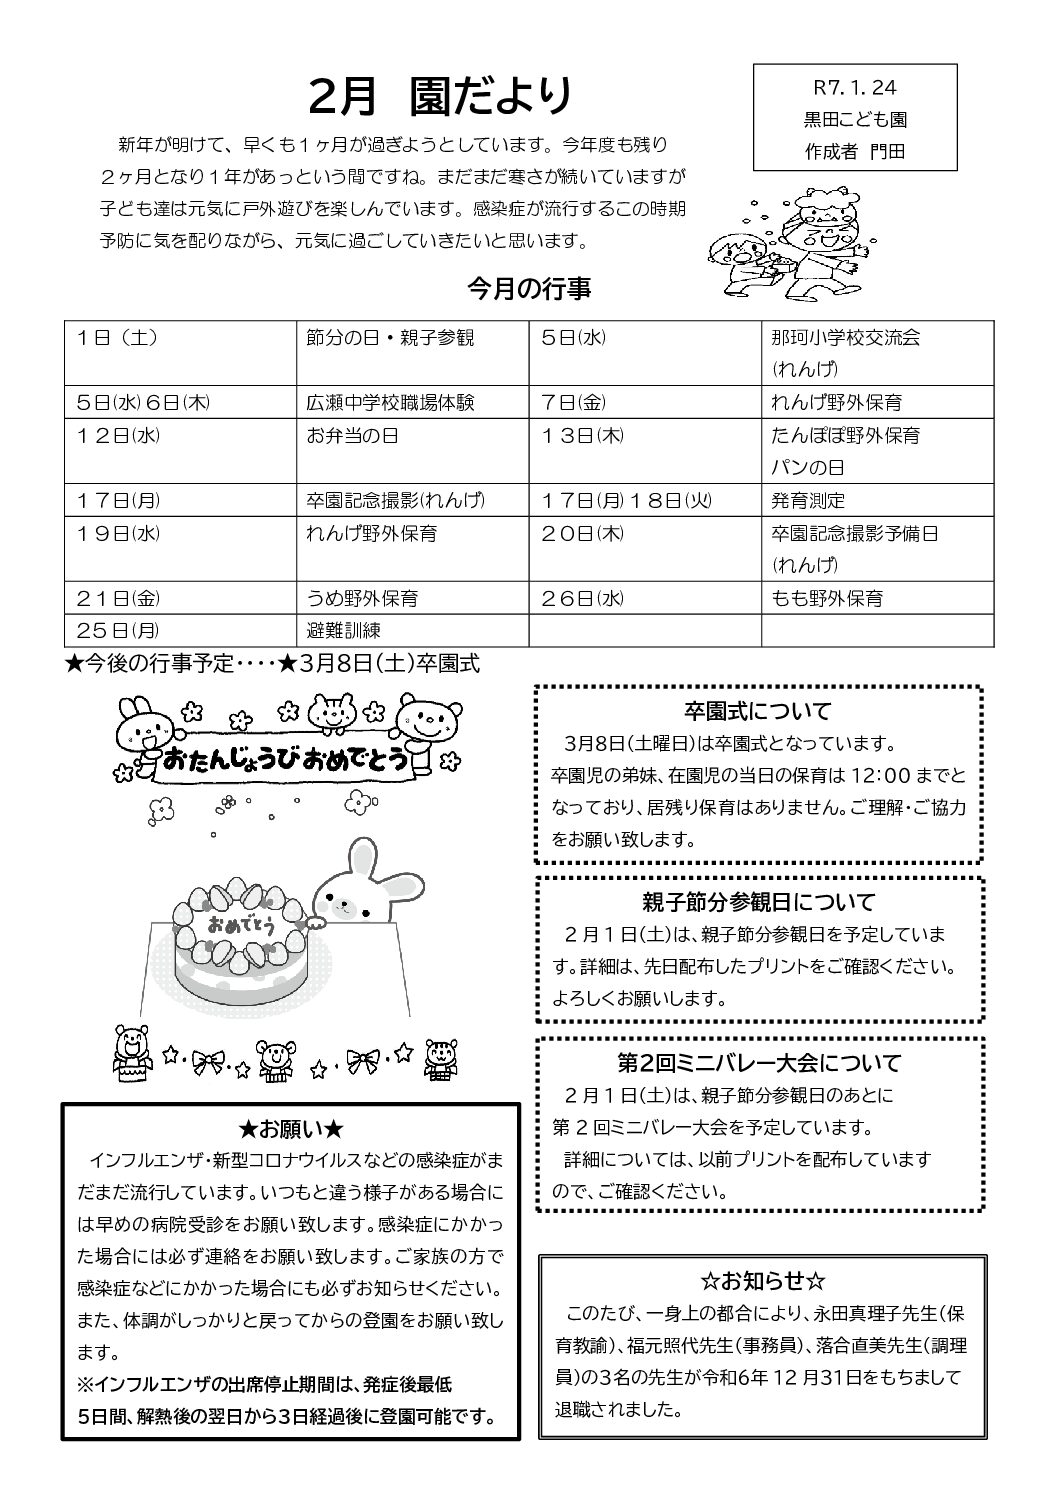 2月　園だより
R7.1.24
黒田こども園
作成者　門田
新年が明けて、早くも１ヶ月が過ぎようとしています。今年度も残り
２ヶ月となり１年があっという間ですね。まだまだ寒さが続いていますが
子ども達は元気に戸外遊びを楽しんでいます。感染症が流行するこの時期
予防に気を配りながら、元気に過ごしていきたいと思います。
今月の行事
１日（土） 節分の日・親子参観 ５日(水) 那珂小学校交流会
(れんげ)
５日(水)６日(木) 広瀬中学校職場体験 ７日(金) れんげ野外保育
１２日(水) お弁当の日 １３日(木) たんぽぽ野外保育
パンの日
１７日(月) 卒園記念撮影(れんげ) １７日(月)１８日(火) 発育測定
１９日(水) れんげ野外保育 ２０日(木) 卒園記念撮影予備日
(れんげ)
２１日(金) うめ野外保育 ２６日(水) もも野外保育
２５日(月) 避難訓練
★今後の行事予定････★3月8日(土)卒園式
おたんじょうびおめでとう
おめでとう
卒園式について
3月8日(土曜日)は卒園式となっています。
卒園児の弟妹、在園児の当日の保育は 12：00 までと
なっており、居残り保育はありません。ご理解・ご協力
をお願い致します。
親子節分参観日について
2月1日(土)は、親子節分参観日を予定していま
す。詳細は、先日配布したプリントをご確認ください。
よろしくお願いします。
第2回ミニバレー大会について
2月1日(土)は、親子節分参観日のあとに
第2回ミニバレー大会を予定しています。
詳細については、以前プリントを配布しています
ので、ご確認ください。
★お願い★
インフルエンザ・新型コロナウイルスなどの感染症がま
だまだ流行しています。いつもと違う様子がある場合に
は早めの病院受診をお願い致します。感染症にかかっ
た場合には必ず連絡をお願い致します。ご家族の方で
感染症などにかかった場合にも必ずお知らせください。
また、体調がしっかりと戻ってからの登園をお願い致し
ます。
※インフルエンザの出席停止期間は、発症後最低
5日間、解熱後の翌日から3日経過後に登園可能です。
☆お知らせ☆
このたび、一身上の都合により、永田真理子先生(保
育教諭)、福元照代先生(事務員)、落合直美先生(調理
員)の3名の先生が令和6年12月31日をもちまして
退職されました。